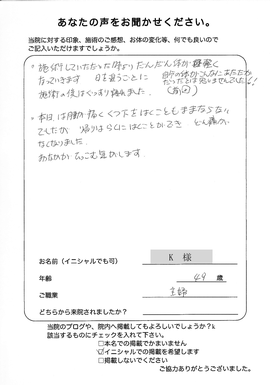 あなたの声をお聞かせください。
当院に対する印象、施術のご感想、お体の変化等、何でも良いので
ご記入いただけますでしょうか。
・施術していただいた時よりだんだん体が軽く
なっていきます 日を追うごとに
施術の後はぐっすり眠れました。（前回）
・本日は腰が痛くくつ下をはくこともままならない
でしたが、帰りはらくにはくことができ
なくなりました。
お名前（イニシャルでも可） K 様
年齢 49 歳
ご職業 主婦
どちらから来院されましたか？
当院のブログや、院内へ掲載してもよろしいでしょうか？k
該当するものにチェックを入れて下さい。
□本名での掲載でかまいません
☑イニシャルでの掲載を希望します
□掲載しないでください
ご協力ありがとうございました。